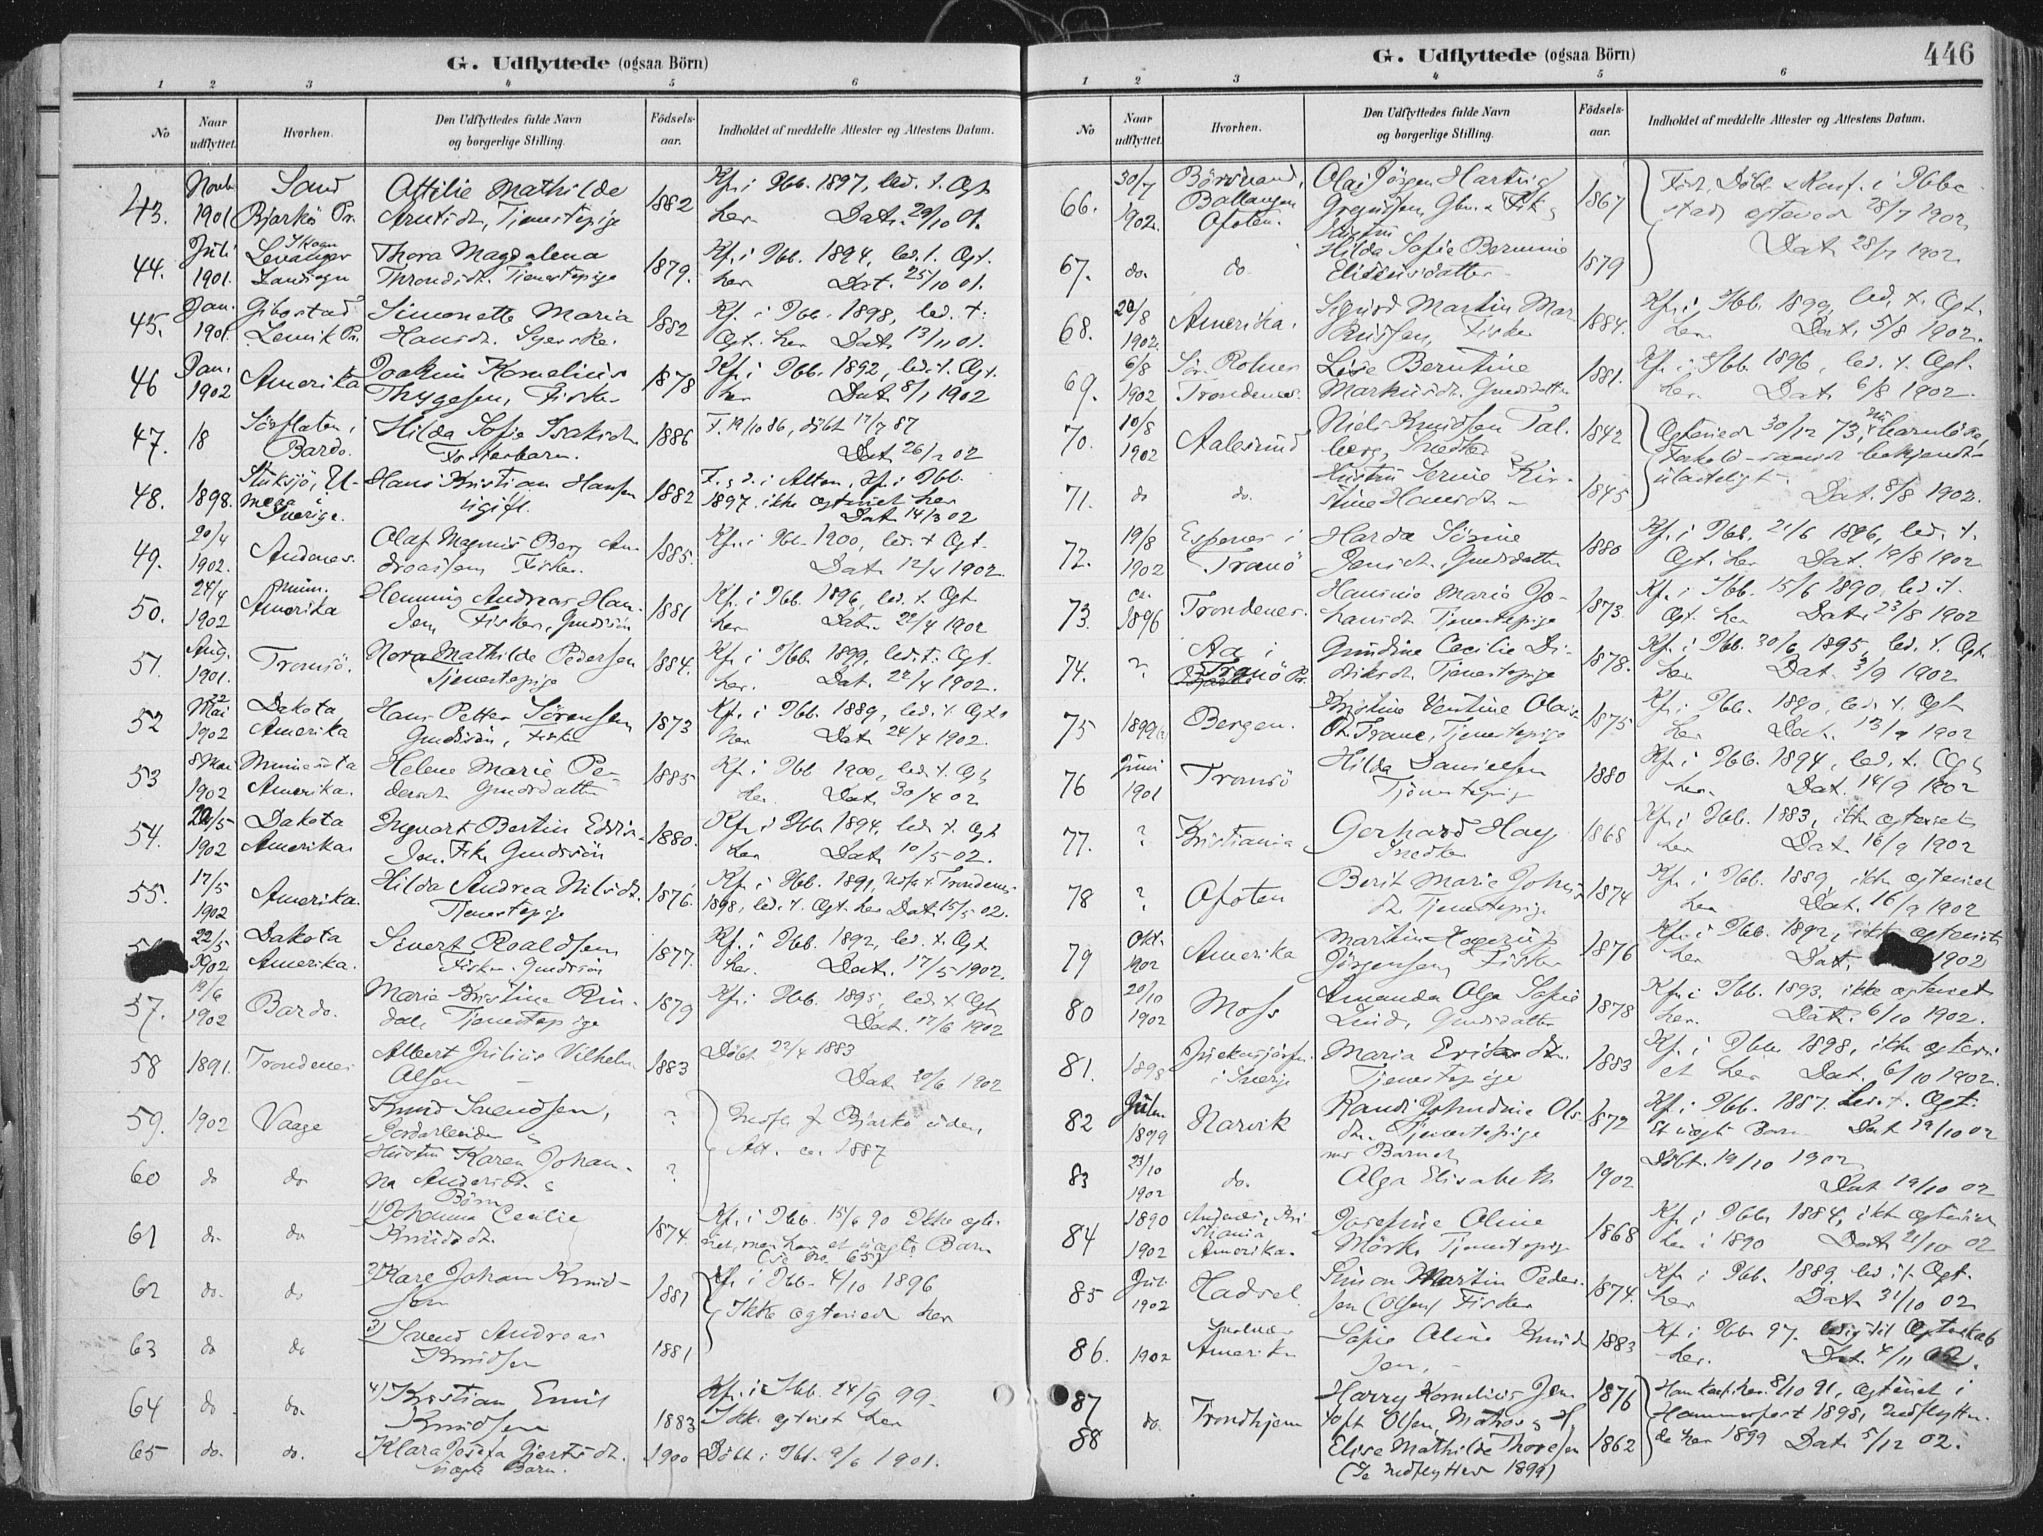 G. Udflyttede (ogsaa Börn)
1 2 3 4 5 6
No
Naar udflyttet.
Hvorhen.
Den Udflyttedes fulde Navn
og borgerlige Stilling.
Födsels-
aar.
Indholdet af meddelte Attester og Attestens Datum.
43. Novb. 1901 Sand Bjarkö Pr. Attilie Mathilde 1882 Kf. i Ibb. 1897, led. t. Ægt.
Tjenestepige her Dat. 29/10 01.
44. Juli 1901. Levanger Skogn Landsogn Thora Magdalena 1879. Kf. i Ibb. 1894, led. t. Ægt.
Throndsdt. Tjenestepige her Dat. 25/10 01.
45. Jan. 1901. Gibostad Lenvik Pr. Simonette Maria 1882 Kf. i Ibb. 1898, led. t.
Hansdt. Syerske. Ægt. her Dat. 13/11 01.
46 Jan. 1902 Amerika Joakim Kornelius 1878 Kf. i Ibb. 1892, led. t. Ægt.
Thygesen, Fisker her Dat. 8/1 1902
47. 18 Bardo. Hilda Sofie Isaksdt. 1886 F. 19/10 86, döbt 17/7 87
Fosterbarn. Dat. 26/2 02
48. 1898. Sverige. Hans Kristian Hansen 1882 F. & d. i Alten, Kf. i Ibb.
ugift. 1897. ikke ægteviet her
Dat. 14/3 02
49. 20/4 1902. Andenes. Olaf Magnus Berg An- 1885. Kf. i Ibb. 1900, led. t. Ægt.
dreassen Fisker. Dat. 12/4 1902.
50. 24/4 1902 Amerika Henning Andreas Han- 1881 Kf. i Ibb. 1896, led. t. Ægt.
sen, Fisker, Gmdssön her Dat. 22/4 1902
51. Aug. 1901. Tromsö. Nora Mathilde Pedersen 1884. Kf. i Ibb. 1899, led. t. Ægt.
Tjenestepige her. Dat. 22/4 1902.
52 22 Mai 1902 Dakota Amerika Hans Petter Sörensen 1873 Kf. i Ibb. 1889, led. t. Ægt.
Gmdssön, Fisker her Dat. 24/4 1902.
53 8 Mai 1902 Minnesota Amerika. Helene Marie Pe- 1885 Kf. i Ibb. 1900, led. t. Ægt.
dersdt. Gmdsdatter her. Dat. 30/4 02
54. 22/5 1902 Dakota Amerika Ingvart Bertin 1880. Kf. i Ibb. 1894, led. t. Ægt.
sen. Fisker Gmdssön her Dat. 10/5 02.
55. 17/5 1902 Amerika. Hilda Andrea Nilsdt. 1876. Kf. i Ibb. 1891, Trondenes
Tjenestepige 1898, led. t. Ægt. her Dat. 15/5 02.
22/5 1902 Dakota Amerika. Sivert Roaldsen 1877. Kf. i Ibb. 1892, led. t. Ægt.
Fisker. Gmdssön her. Dat. 17/5 1902.
57. 19/6 1902 Bardo. Marie Kristine Rin- 1879 Kf. i Ibb. 1895, led. t. Ægt.
dal, Tjenestepige Dat. 17/6 1902
58 1891. Trondenes Albert Julius Vilhelm 1883 Döbt 22/4 1883
Olsen Dat. 20/6 1902
59. 1902 Vaage Knud Svendsen, ? Indfl. fr Bjarkö uden
Jordarbeider & Att. ca. 1887
60 do do Hustru Karen Johan- ?
na Andersdt. &
Börn
61 do do 1) Johanna Cecilie 1874. Kf. i Ibb. 15/6 90 Ikke ægte-
Knudsdt. viet, men har et uægte Barn
(se No 65)
62 do. do 2) Kare Johan Knud- 1881 Kf. i Ibb. 4/10 1896
sen Ikke ægteviet her
63 do do 3) Svend Andreas 1881
Knudsen
64 do do. 4) Kristian Emil 1883 Kf. i Ibb. 24/9 99.
Knudsen Ikke ægteviet her
65 do. do. Klara Josefa Gjertsdt. 1900 Döbt i Ibb. 9/6 1901.
uægte Barn.
G. Udflyttede (ogsaa Börn) 446
1 2 3 4 5 6
No
Naar udflyttet.
Hvorhen.
Den Udflyttedes fulde Navn
og borgerlige Stilling.
Födsels-
aar.
Indholdet af meddelte Attester og Attestens Datum.
66. 30/7 1902. Ballangen Ofoten. Olai Jörgen Hartvig 1867 Föd, Döbt & Konf. i Ibbe-
stad, ægteviet 28/7 1902,
Hustru Dat. 28/7 1902.
67. do. do. Hilda Sofie 1879
68. 20/8 1902. Amerika. Sigurd Martin Mar- 1884. Kf. i Ibb. 1899, led. t. Ægt.
Fisker her Dat. 5/8 1902.
69. 6/8 1902 Sör Rolnes Trondenes. Lise Berntine 1881. Kf. i Ibb. 1896, led. t. Ægt.
Markusdt. Gmdsdatter her. Dat. 6/8 1902.
70. 10/8 1902 Aalesund Niels Knudsen Tal- 1842 Ægteviet 30/12 73, barnlöse,
berg, Snedker
71. do do. Hustru Serine Kir- 1845 uladeligt
stine Hansdt. Dat. 8/8 1902.
72. 19/8 1902 Espenes i Tranö Harda Sörine 1880 Kf. i Ibb. 21/6 1896, led. t.
Jensdt. Gmdsdatter Ægt. her Dat. 19/8 1902
73. ca. 1896 Trondenes. Hansine Marie Jo- 1873. Kf. i Ibb. 15/6 1890, led. t.
hansdt. Tjenestepige Ægt. her Dat. 23/8 1902
74. ? Aa i Tranö Pr. Gundine Cecilie Di- 1878. Kf. i Ibb. 30/6 1895, led. t. Ægt.
driksdt. Tjenestepige her Dat. 3/9 1902
75 1899 Bergen. Kristine Ventine Olais- 1875 Kf. i Ibb. 1890, led. t. Ægt.
dt. Trane, Tjenestepige her Dat. 13/9 1902
76 Juni 1901 Tromsö Hilda Danielsen 1880 Kf. i Ibb. 1894, led. t. Ægt.
Tjenestepige her. Dat. 14/9 1902
77. ? Kristiania Gerhard Hay 1868 Kf. i Ibb. 1883, ikke ægteviet
Snedker her Dat. 16/9 1902
78 ? Ofoten Berit Marie Johns- 1874 Kf. i Ibb. 1889, ikke ægteviet
dt. Tjenestepige her Dat. 16/9 1902
79 Okt. 1902 Amerika Martin 1876 Kf. i Ibb. 1892, ikke ægteviet
Jörgensen, Fisker her Dat. 1902
80 20/10 1902 Moss Amanda Olga Sofie 1878 Kf. i Ibb. 1893, ikke ægteviet
Lind, Gmdsdatter her. Dat. 6/10 1902.
81. 1898 i Sverige Maria 1883 Kf. i Ibb. 1898, ikke ægtevi-
Tjenestepige et her Dat. 6/10 1902.
82 1899 Narvik Randi Johndine Ols- 1872 Kf. i Ibb. 1887, led. t. Ægt.
dt. Tjenestepige Et uægte Barn Dat. 19/10 02
med Barnet
83 23/10 1902 do. Olga Elisabeth 1902 Döbt. 19/10 1902
Dat. 19/10 02
84 1890 1902 Amerika. Josefine Oline 1868 Kf. i Ibb. 1884, ikke ægteviet
Mörk Tjenestepige her i 1890 Dat. 21/10 02
85 Juli 1902 Hadsel Simon Martin Peder- 1874. Kf. i Ibb. 1889, led. t. Ægt.
sen (Olsen) Fisker her Dat. 31/10 02
86. 1902 Amerika Sofie Oline Knud- 1883 Kf. i Ibb. 97. ledig til Ægteskab
sen, her. Dat. 4/11 02.
87 do. Trondhjem Harry Kornelius Jen- 1876 Han konf. her 8/10 91, ægteviet i
toft Olsen, Matros & H. Hammerfest 1898, indflytte-
88 Elise Mathilde Thoresen 1862 de her 1899 Dat. 5/12 02.
(Se indflyttede 1899)